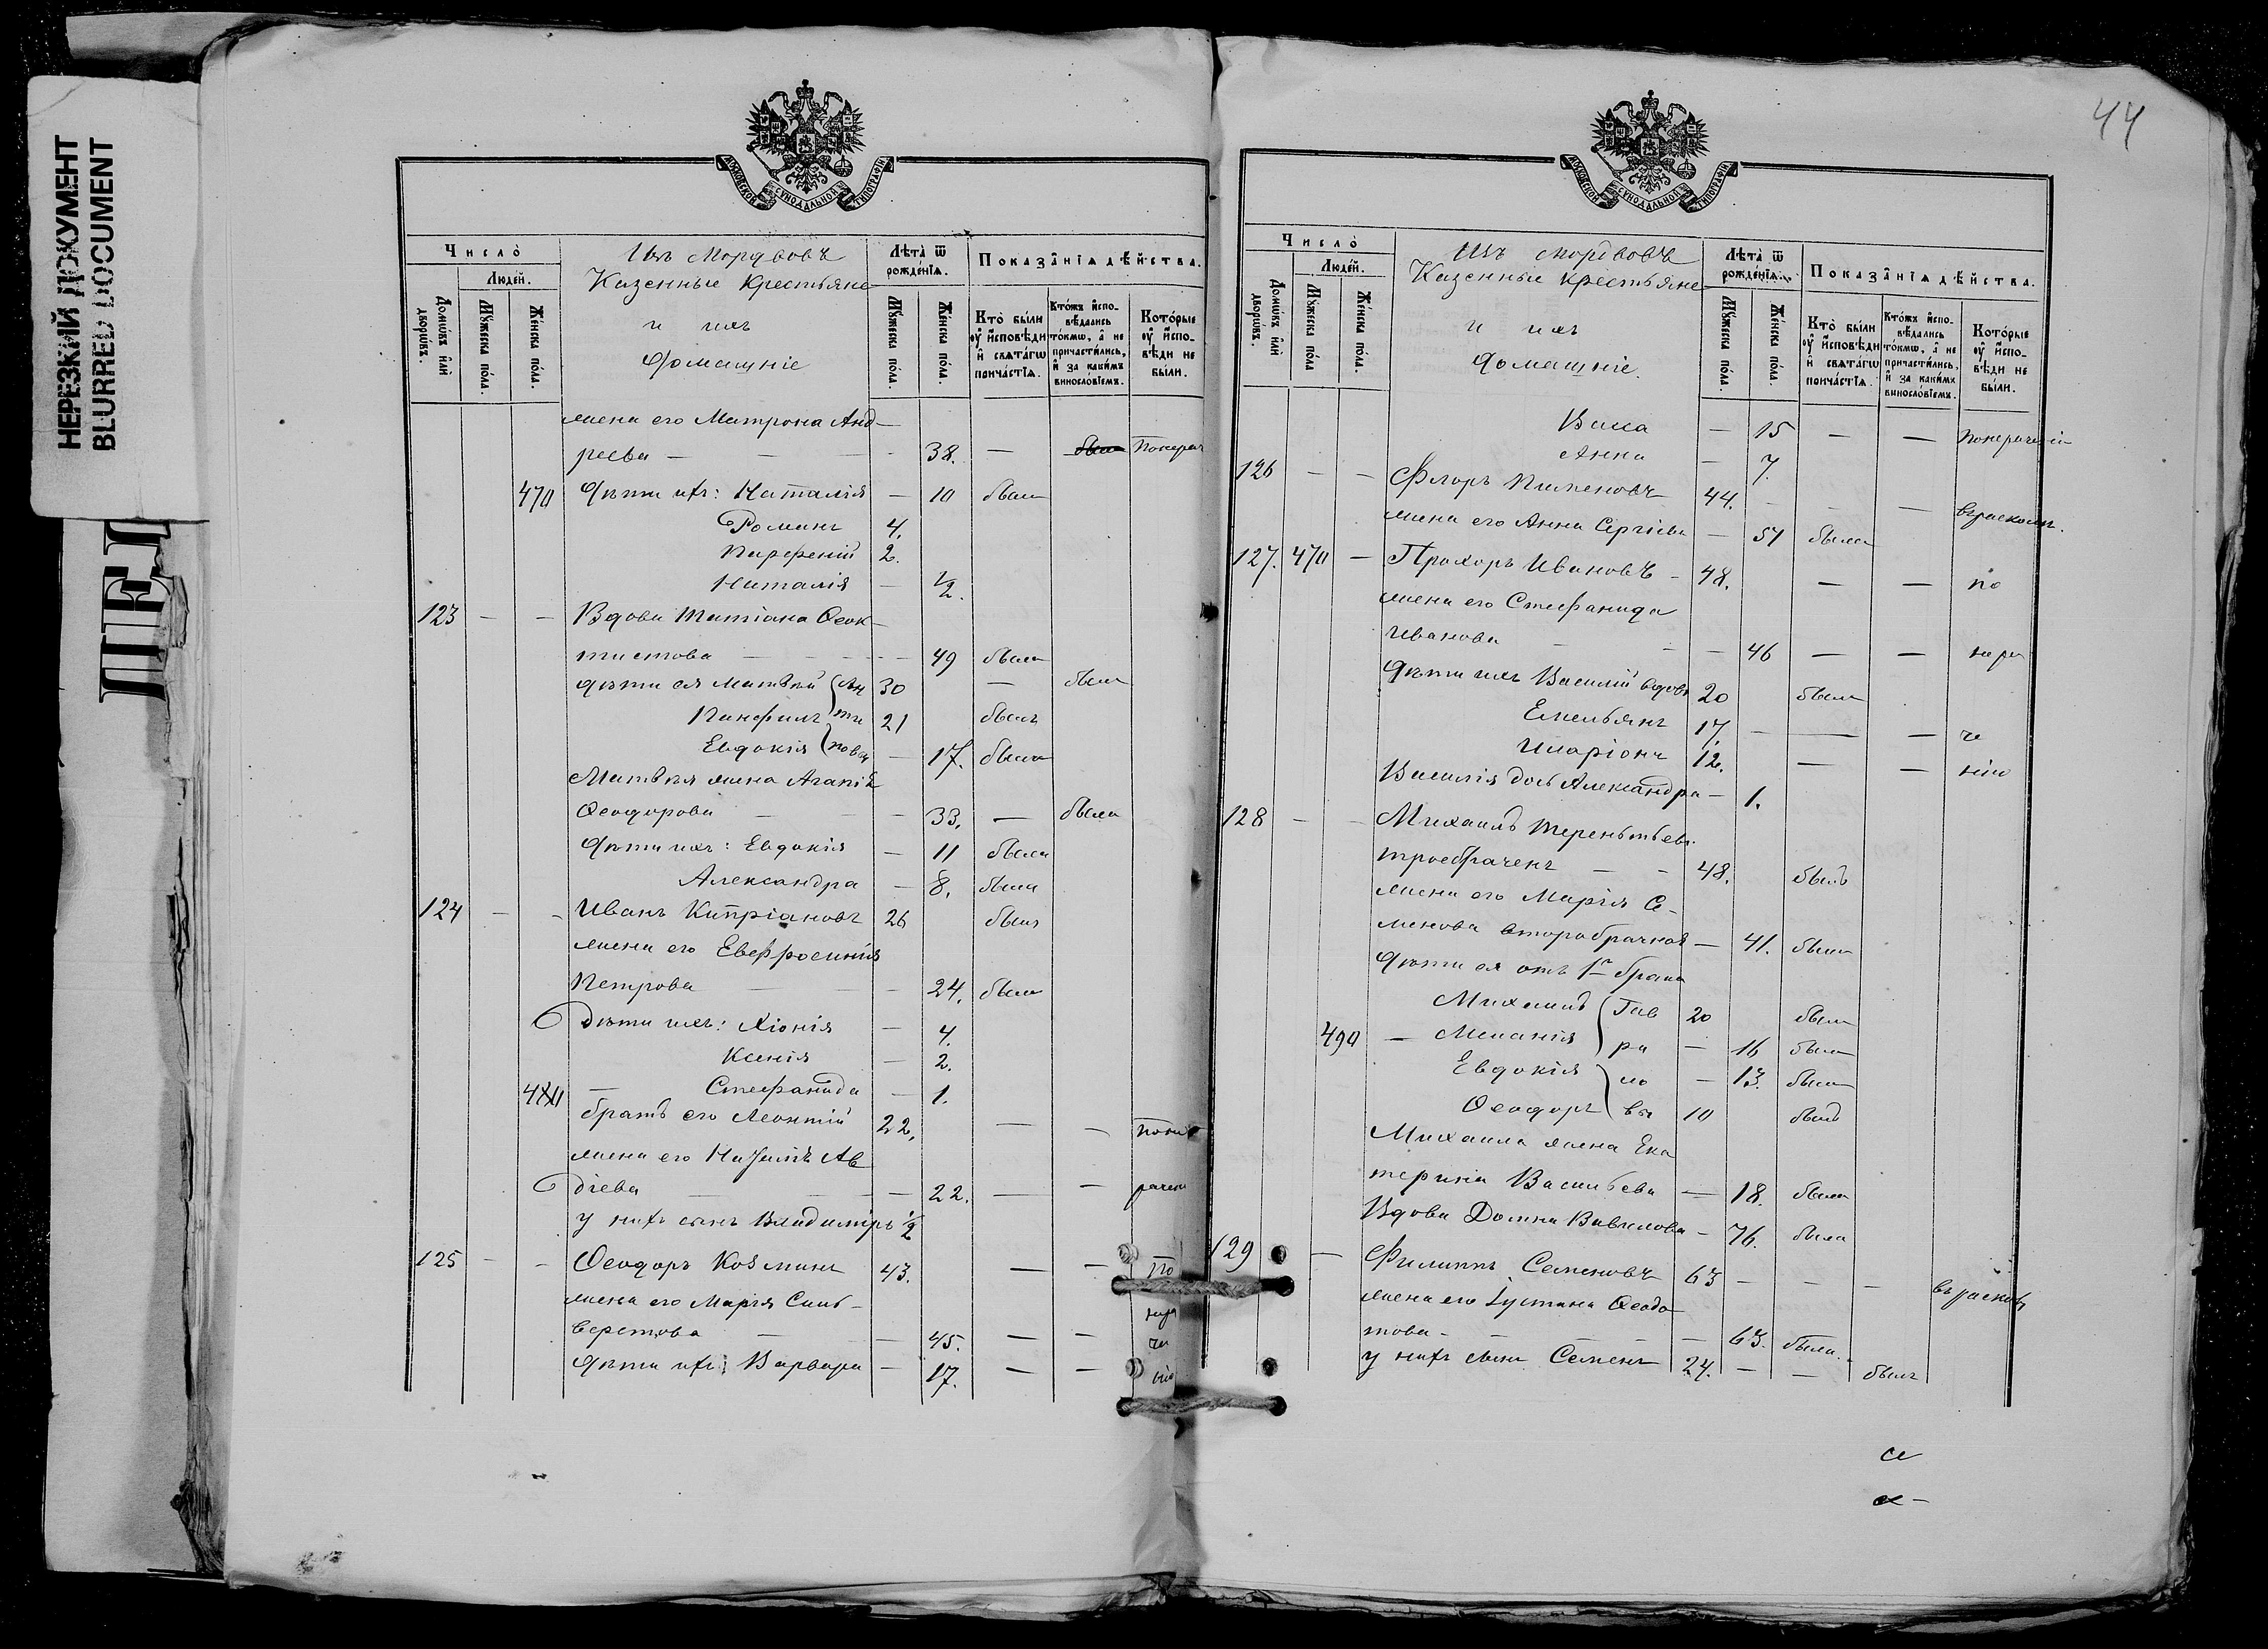 НЕРЕЗКИЙ ДОКУМЕНТ
BLURRED DOCUMENT
МОСКОВСКОЙ СѴНОДАЛЬНОЙ ТИПОГРАФІИ
Число̀
Людéй.
Домѡ́въ и҆лѝ дворѡ́въ.
Мꙋ́жеска пóла.
Же́нска пóла.
Изъ Мордвовъ
Казенные Крестьяне
и ихъ
домашніе
Лѣта̀ ѿ рожде́нїѧ.
Мꙋ́жеска пóла.
Же́нска пóла.
Показа̑нїѧ дѣ́йства.
Кто̀ бы́ли ᲂу҆ и҆сповѣ́ди и҆ свѧта́гѡ прича́стїѧ.
Кто́жъ и҆сповѣ́дались то́кмѡ, а҆ не причасти́лись, и҆ за каки́мъ винослóвїемъ.
Кото́рые ᲂу҆ и҆сповѣ́ди не бы́ли.
жена его Матрона Анд-
реева — 38. —
470 дѣти ихъ: Наталія — 10 была
Романъ 4.
Парфеній 2.
Наталія — ½.
123 — — Вдова Татіана Ѳеок-
тистова — 49 была
дѣти ея Матвѣй (Ан 30 — былъ
Панфилъ ти 21 былъ
Евдокія (повы — 17. была
Матвѣя жена Агапія
Ѳеодорова — 33. — была
дѣти ихъ: Евдокія — 11 была
Александра — 8. была
124 — — Иванъ Кипріановъ 26 былъ
жена его Евфросинія
Петрова — 24. была
Дѣти ихъ: Хіонія — 4.
Ксенія — 2.
480 — Стефанида — 1.
братъ его Леонтій 22. — —
жена его Ав
діева — 22. — —
у нихъ сынъ Владиміръ ½
125 — — Ѳеодоръ Козминъ 43. — — по
жена его Марія Сили-
верстова — 45. — —
дѣти ихъ: Варвара — 17. — —
44
МОСКОВСКОЙ СѴНОДАЛЬНОЙ ТИПОГРАФІИ
Число̀
Людéй.
Домѡ́въ и҆лѝ дворѡ́въ.
Мꙋ́жеска пóла.
Же́нска пóла.
Изъ мордвовъ
Казенные крестьяне
и ихъ
домашніе.
Лѣта̀ ѿ рожде́нїѧ.
Мꙋ́жеска пóла.
Же́нска пóла.
Показа̑нїѧ дѣ́йства.
Кто̀ бы́ли ᲂу҆ и҆сповѣ́ди и҆ свѧта́гѡ прича́стїѧ.
Кто́жъ и҆сповѣ́дались то́кмѡ, а҆ не причасти́лись, и҆ за каки́мъ винослóвїемъ.
Кото́рые ᲂу҆ и҆сповѣ́ди не бы́ли.
Васса — 15 — —
Анна — 7.
126 — — Флоръ Пименовъ 44. — — — въ расколѣ.
жена его Анна Сергіева — 51 была
127. 470 — Прохоръ Ивановъ — 48. — — по
жена его Стефанида
Иванова — 46 — — нера
дѣти ихъ Василій вдовъ 20 былъ
Емельянъ 17. — — — че
Иларіонъ 12. — — нію
Василія дочь Александра — 1.
128 — — Михаилъ Терентьевъ
троебраченъ — — 48. былъ
жена его Марія Се-
менова второбрачная — 41. была
дѣти ея отъ 1го брака
Михаилъ (Гав 20 былъ
490 — Меланія ри — 16 была
Евдокія ло — 13. была
Ѳеодоръ вы 10 былъ
Михаила жена Ека
терина Васильева — 18. была
Вдова Домна Вавилова — 76. была
129 — Филиппъ Семеновъ 63 — — — въ расколѣ
жена его Іустина Ѳеодо
това — 63. была.
у нихъ сынъ Семенъ 24. — — былъ